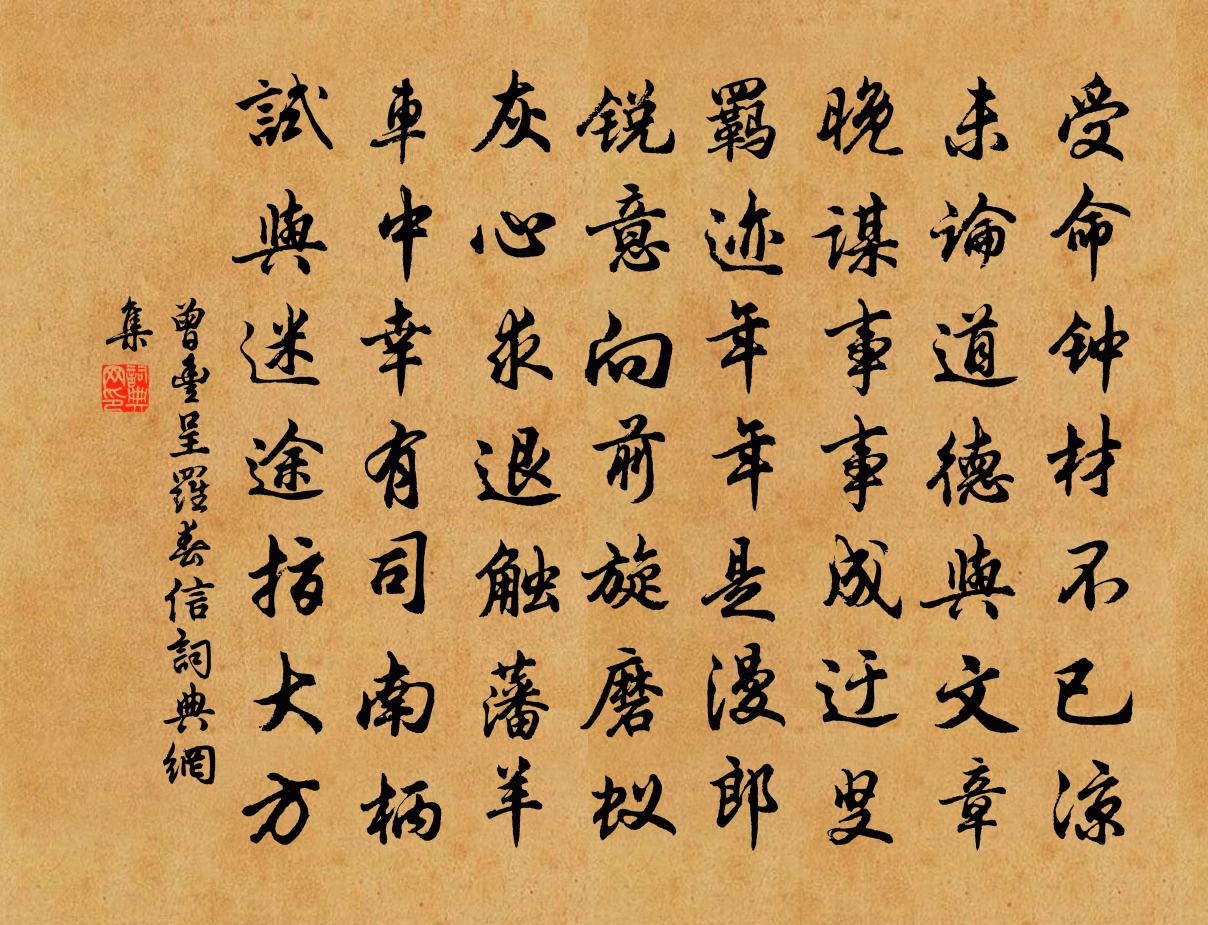 受命钟材不已凉
未論道德與文章
晚謀事事成迂叟
羈迹年年是漫郎
锐意向前旋磨蚁
灰心求退触藩羊
車中幸有司南柄
試與迷途指大方
曾豊呈羅春信詞典網
集
詞典网印